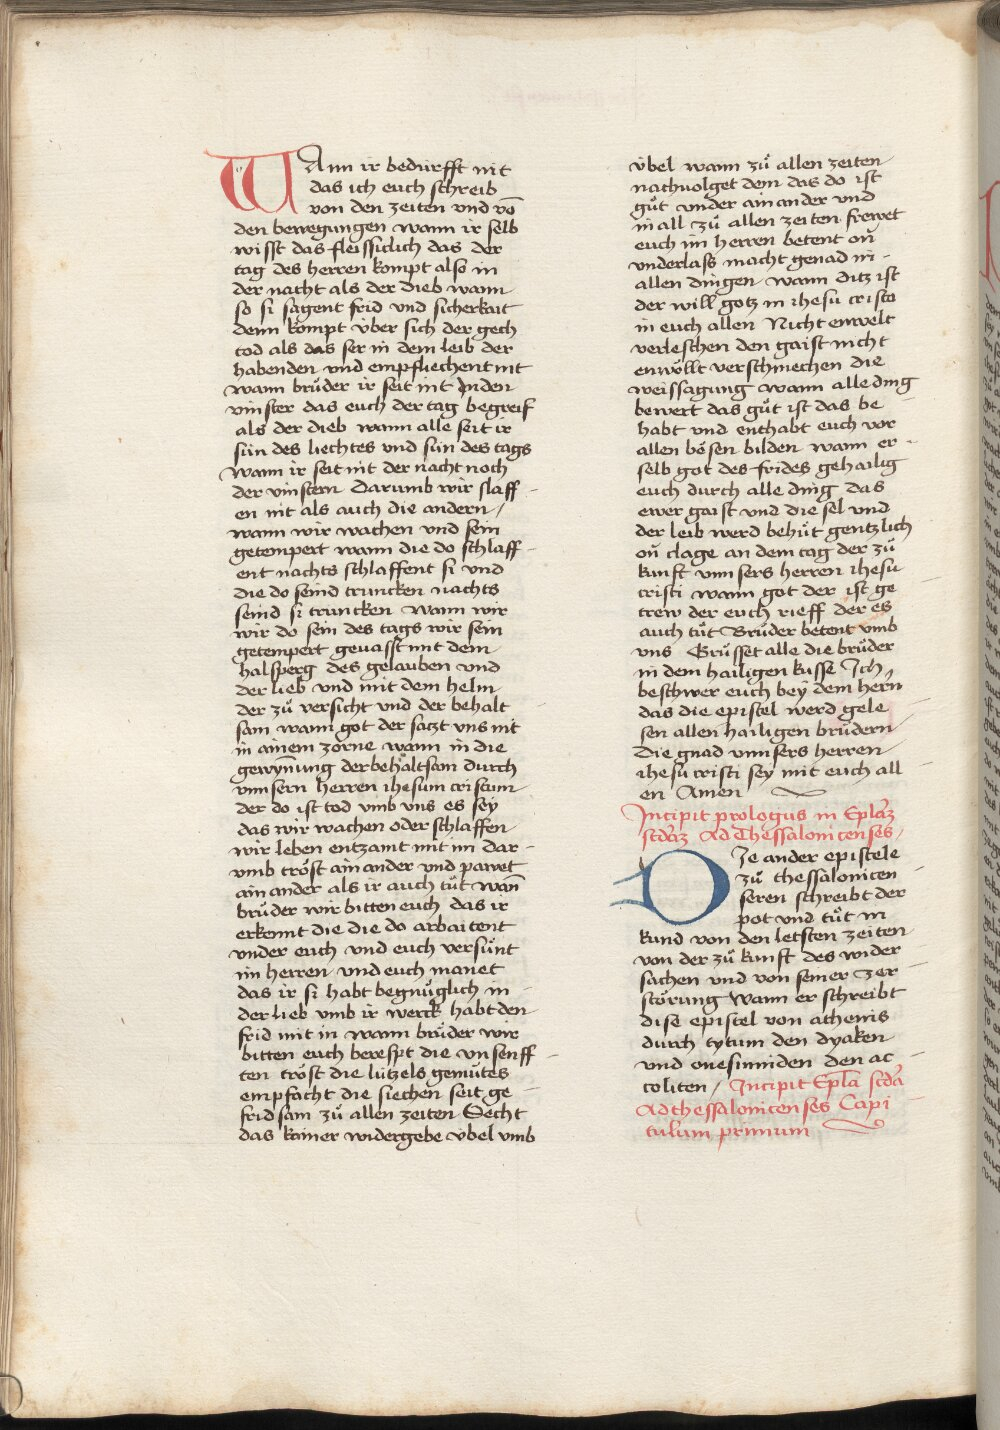 WAnn ir bedürfft nit
das ich euch schreib
von den zeiten vnd vō
den bewegungen wann ir selb
wisst das fleissiclich das der
tag des herren kompt also in
der nacht als der dieb wann
so si sagent frid vnd sicherkait
denn kompt v̈ber sich der gech
tod als das ser in dem leib der
habenden vnd empfliechent nit
wann brüder ir seit nit Inden
vinster das euch der tag begreif
als der dieb wann alle seit ir
sün des liechtes vnd sün des tags
wann ir seit nit der nacht noch
der vinstern Darumb wir slaff -
en nit als auch die andern /
wann wir wachen vnd sein
getempert wann die do schlaff -
ent nachts schlaffent si vnd
die do seind truncken nachts
seind si truncken Wann wir
wir do sein des tags wir sein
getempert geuasst mit dem
halsperg des gelauben vnd
der lieb vnd mit dem helm
der zů versicht vnd der behalt
sam wann got der satzt vns nit
in ainem zorne wann in die
gewyn̄ung der behaltsam durch
vnnsern herren ihesum cristum
der do ist tod vmb vns es sey
das wir wachen oder schlaffen
wir leben entzamt mit im dar -
vmb tröst ain ander vnd pawet
ain ander als ir auch tüt wan̄
brüder wir bitten euch das ir
erkennt die die do arbaitent
vnder euch vnd euch versünt
im herren vnd euch manet
das ir si habt begnüglich in -
der lieb vmb ir werck habt den
frid mit in wann brüder wir
bitten euch berespt die vnsenff -
ten tröst die lützels gemütes
empfacht die siechen seit ge -
fridsam zů allen zeiten Secht
das kainer widergebe v̈bel vmb
v̈bel wann zů allen zeiten
nachuolget dem das do ist
gůt vnder ain ander vnd
in all zů allen zeiten frewet
euch im herren betent on̄
vnderlass macht genad in -
allen dingen wann ditz ist
der will gotz in ihesu cristo
in euch allen Nicht enwelt
verleschen den gaist nicht
enwöllt verschmechen die
weissagung wann alle ding
bewert das gůt ist das be
habt vnd enthabt euch vor
allen bösen bilden wann er -
selb got des frides gehailig
euch durch alle ding das
ewer gaist vnd die sel vnd
der leib werd behüt gentzlich
on̄ clage an dem tag der zů
kunft vnnsers herren ihesu
cristi wann got der ist ge
trew der euch rieff der es
auch tüt Brüder betent vmb
vns Grüsset alle die brüder
in dem hailigen kusse Ich
beschwer euch bey dem hern̄
das die epistel werd gele
sen allen hailigen brüdern
Die gnad vnnsers herren
ihesu cristi sey mit euch all
en Amen
Incipit prologus in Eplaʒ
scdaʒ ad Thessalonicenses /
DIe ander epistele
zů thessalonicen
seren schreibt der
pot vnd tüt in
kund von den letsten zeiten
von der zů kunft des wider
sachen vnd von seiner zer
störung Wann er schreibt
dise epistel von athenis
durch tytum den dyaken
vnd onesimiden den ac
coliten / Incipit Epl̄a scd̄a
Ad thessalonicenses Capi
tulum primum